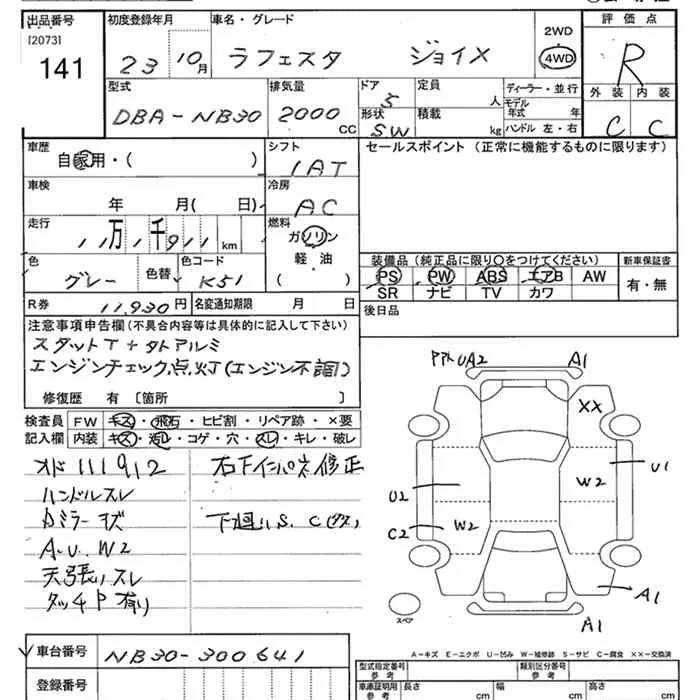 出品番号 初度登録年月 車名・グレード 2WD 評価点
[2073]
141 23 10月 ラフェスタ ジョイX 4WD R
型式 排気量 ドア 定員 ディーラー・並行 外装 内装
DBA-NB30 2000 CC 5 人 モデル年式 年
形状 積載
SW kg ハンドル 左・右 C C
車歴 シフト セールスポイント (正常に機能するものに限ります)
自家用・( ) IAT
車検 冷房
年 月( 日) AC
走行 燃料
11万1千911km ガソリン
軽油
( )
色 色替 色コード 装備品 (純正品に限り○をつけてください) 新車保証書
グレー K51 PS PW ABS エアB AW 有・無
SR ナビ TV カワ
R券 11,930円 名変通知期限 月 日 後日品
注意事項申告欄(不具合内容等は具体的に記入して下さい)
スタットT+タトアルミ
エンジンチェック点灯(エンジン不調)
修復歴 有 〔箇所 〕
検査員 FW キズ・飛石・ヒビ割・リペア跡・×要
記入欄 内装 キズ・汚レ・コゲ・穴・スレ・キレ・破レ
オド111912 右下インパネ修正
ハンドルスレ
Dミラーキズ 下廻りS、C(多)
A.U.W2
天張りスレ
タッチP有り
UA2 A1
XX
U1
W2
U2
C2
W2
A1
スペア
A1
A-キズ E-エクボ U-凹み W-補修跡 S-サビ C-腐食 XX-交換済
車台番号 NB30-300641
登録番号
型式指定番号 参考 類別区分番号 参考
車庫証明用 参考 長さ cm 幅 cm 高さ cm